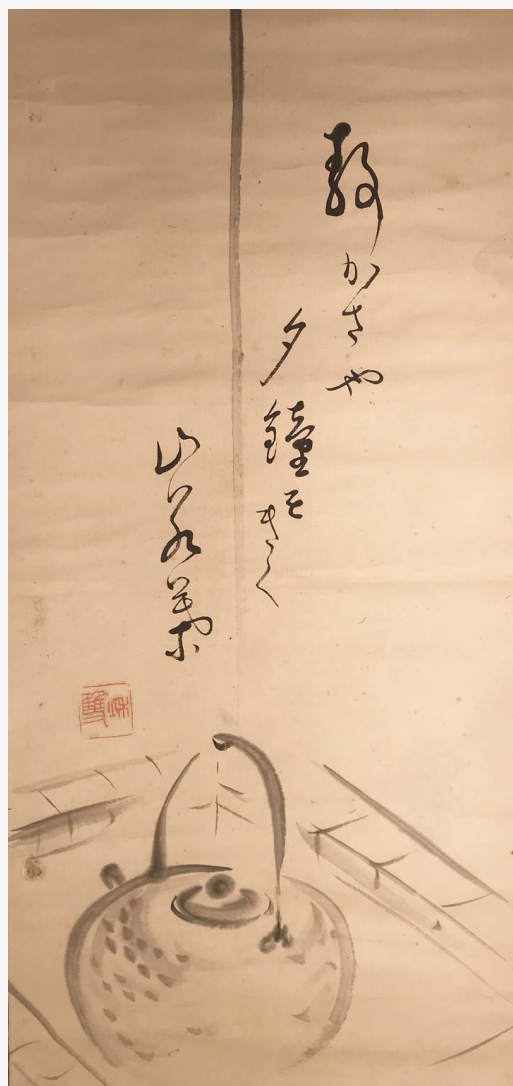 静かさや
夕鐘をきく
山若葉